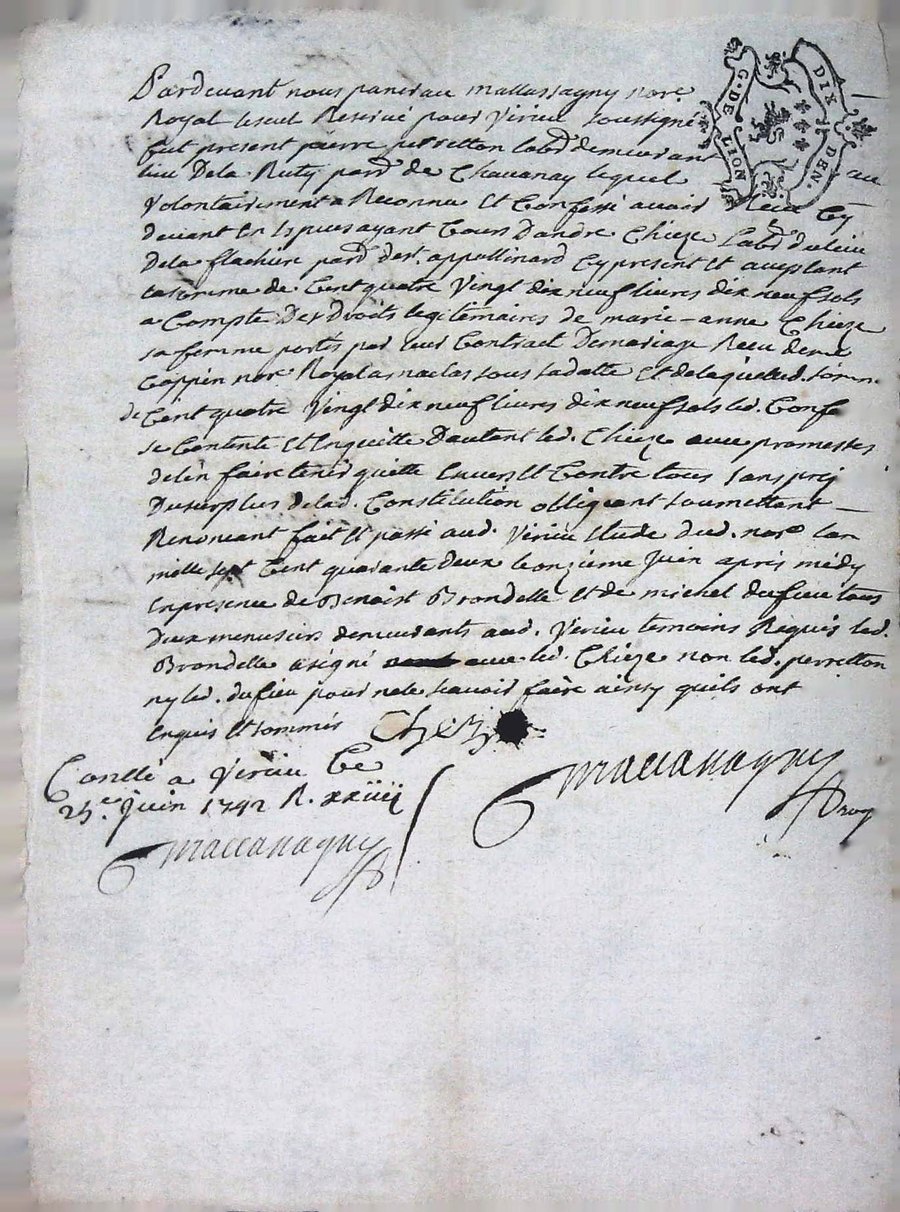 Pardevant nous pancrau mattassagny nore
Royal Reservé pour Virieu soussigné
G. DE LION
DIX DEN.
fut présent pierre perretton labr demeurant
lieu De la Ruty parr de Chavanay lequel au
Volontairement a Reconnu Et Confessé avoir Receu Cy
devant En Espuces ayant Cours D'andré Chieze Labr du lieu
De la flachère parr de st. appollinard Cy present Et aceptant
la somme de Cent quatre Vingt dix neuf livres dix neuf sols
a Compte Des Droits legitemaires de marie-anne Chieze
sa femme portés par leur Contract De mariage Receu de me
Coppin nore Royal sous sa datte Et de laquelle d. somme
de Cent quatre Vingt dix neuf livres dix neuf sols led. Confe
se Contente Et En quitte D'autent led. Chieze avec promesses
de l'en faire tenir quitte Envers Et Contre tous sans prej
Du surplus de lad. Constitution obligeant soumettant
Renoncant fait Et passé aud. Virieu Etude dud. nore l'an
mille sept Cent quarante deux le onzieme Juin après médy
En presence de Benoist Brondelle Et de michel dufieu tous
Deux menusiers demeurants aud. Verieu temoins Requis led.
Brondelle a signé avec led. Chieze non led. perretton
ny led. dufieu pour ne le scavoir faire ainsy quils ont
Enquis Et sommés Chieze
Conllé a Verieu Ce
25.e Juin 1742 R. xxiiij
Maccanagny
Maccanagny